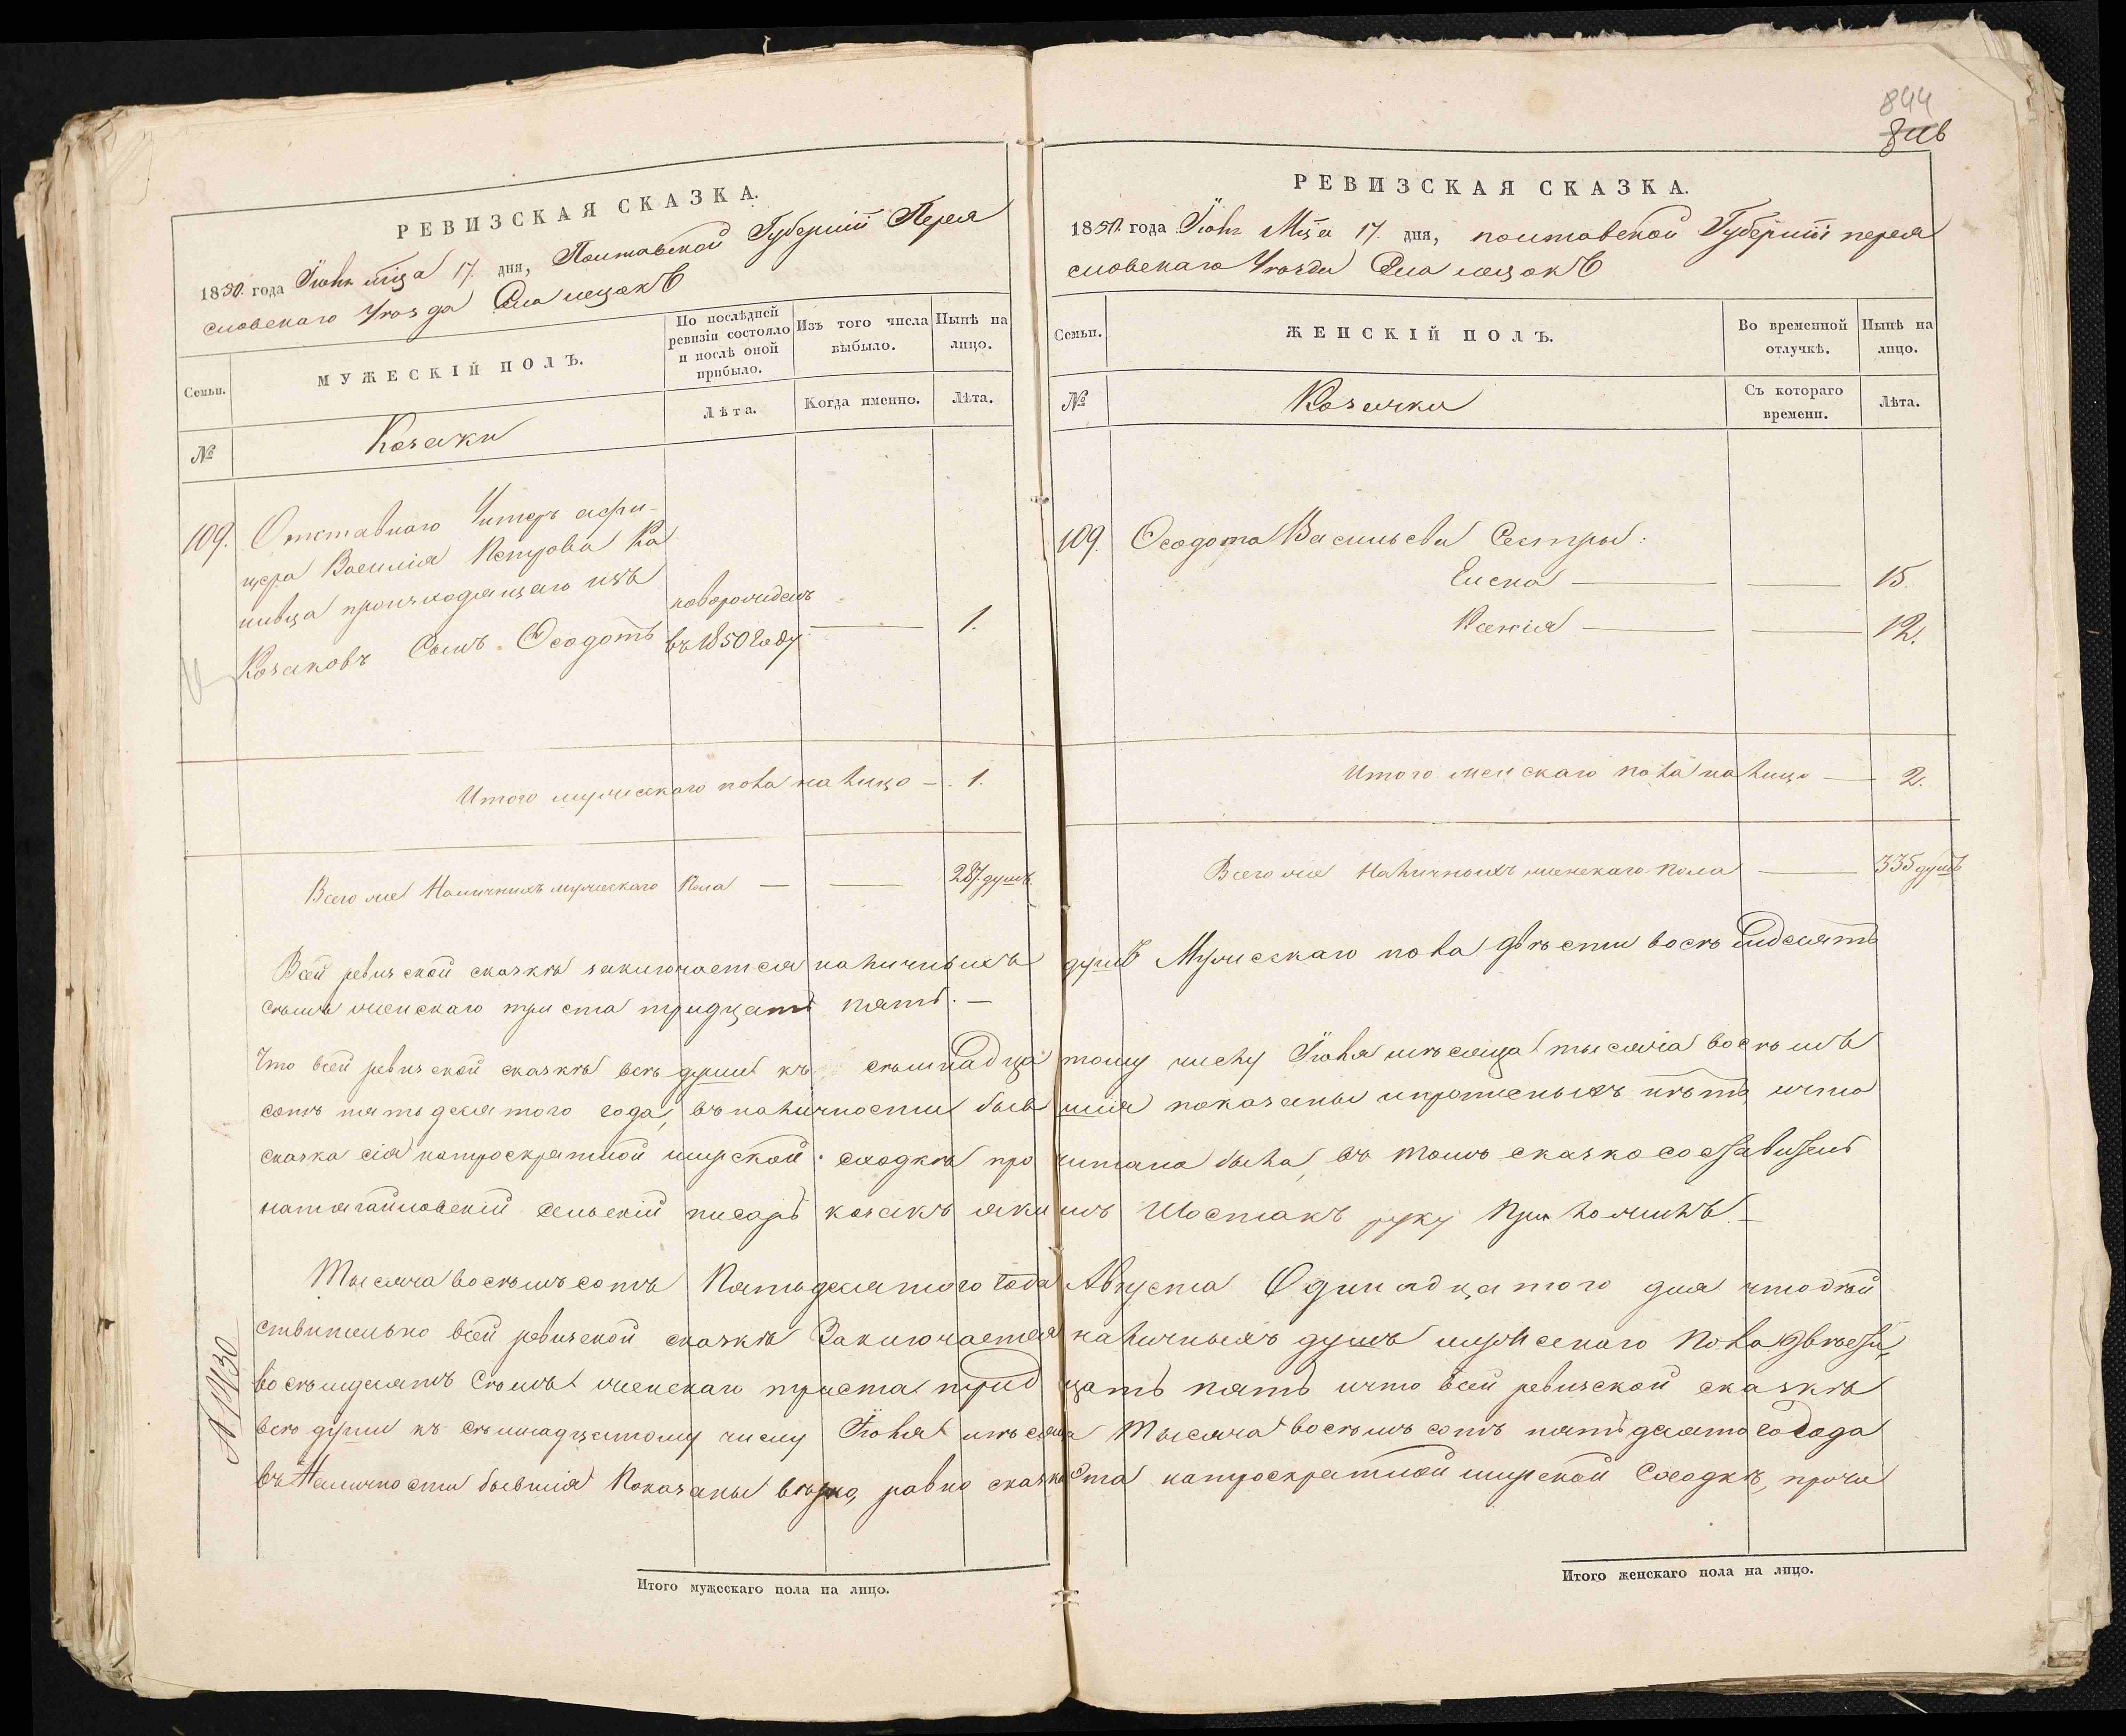 844
РЕВИЗСКАЯ СКАЗКА.
1850. года Іюня мѣца 17. дня, Полтавской Губерніи Перея
словскаго Уезда Села
Семьи.
МУЖЕСКІЙ ПОЛЪ.
По послѣдней ревизіи состояло и послѣ оной прибыло.
Изъ того числа выбыло.
Нынѣ на лицо.
№
Козаки
Лѣта.
Когда именно.
Лѣта.
109. Отставнаго Унтеръ афи-
цера Василія Петрова Ка
нивца происходящаго изъ
Козаковъ Сынъ Ѳеодотъ
новорожденъ
въ 1850 году
1.
Итого мужескаго пола на лицо - 1.
Всего же Наличныхъ мужескаго Пола — — 287. душъ
РЕВИЗСКАЯ СКАЗКА.
1850. года Іюня Мца 17. дня, полтавской Губерніи перея
словскаго Уезда Села
Семьи.
ЖЕНСКІЙ ПОЛЪ.
Во временной отлучкѣ.
Нынѣ на лицо.
№
Козачки
Съ котораго времени.
Лѣта.
109. Ѳеодота Васильева Сестры:
Елена — — 15.
Ксенія — — 12.
Итого женскаго пола на лицо — 2.
Всего же Наличныхъ женскаго пола — 335 душъ
Всей ревизской сказкѣ заключается наличныхъ душъ Мужескаго пола двѣсти восемьдесятъ
семь женскаго триста тридцать пять. —
Что всей ревизской сказкѣ всѣ души къ семнадцатому числу Іюня мѣсяца тысяча восемь
сотъ пятьдесятого года, въ наличности бывшія показаны и пропсныхъ нѣтъ и что
сказка сія натроекратной мирской сходкѣ прочитана была, въ томъ сказкосоставитель
сельскій писарь козакъ Якимъ Шостакъ руку Приложилъ —
Тысяча восемь сотъ Пятьдесятого Года Августа Одинадцатого дня что дѣй
ствительно всей ревизской сказкѣ Заключается наличныхъ душъ мужескаго Пола двѣсти,
восемьдесятъ Семь женскаго триста тридцать пять и что всей ревизской сказкѣ
всѣ души къ семнадцатому числу Іюня мѣсяца Тысяча восемь сотъ пятьдесятого года
въ Наличности бывшія Показаны вѣрно, равно сказка ста натроекратной мирской Сходкѣ, прочи
Итого мужескаго пола на лицо.
Итого женскаго пола на лицо.